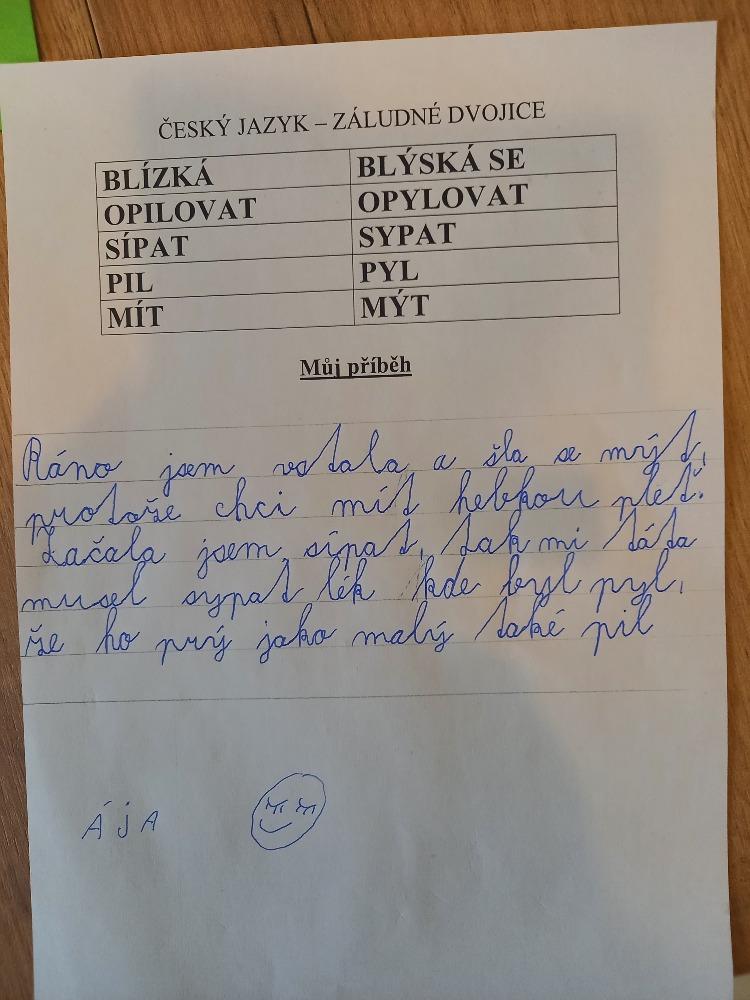 ČESKÝ JAZYK – ZÁLUDNÉ DVOJICE
BLÍZKÁ BLÝSKÁ SE
OPILOVAT OPYLOVAT
SÍPAT SYPAT
PIL PYL
MÍT MÝT
Můj příběh
Ráno jsem vstala a šla se mýt,
protože chci mít hebkou pleť.
Začala jsem sípat, tak mi táta
musel sypat lék kde byl pyl,
že ho prý jako malý také pil
ÁJA